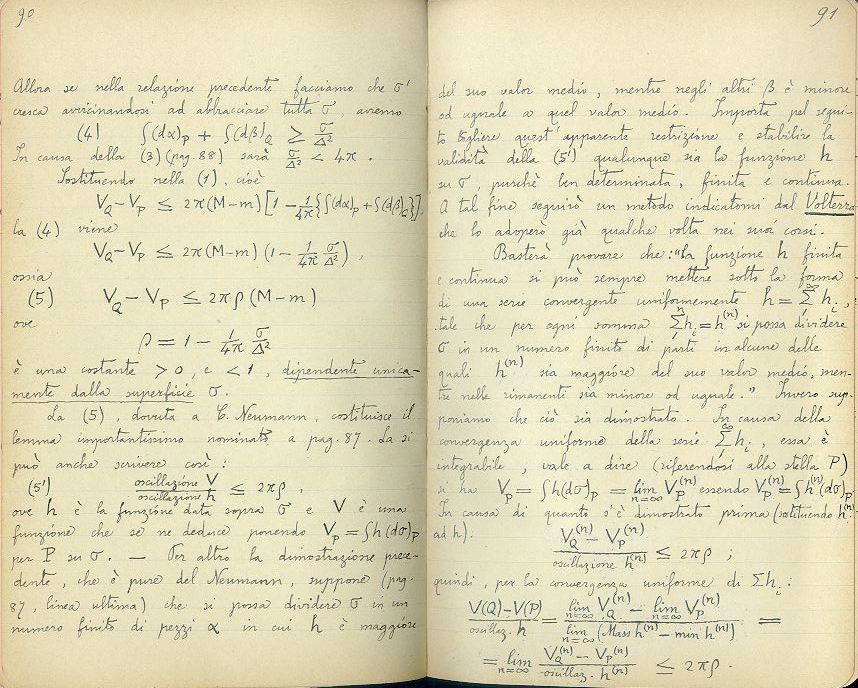 90
Allora se nella relazione precedente facciamo che σ'
cresca avvicinandosi ad abbracciare tutta σ, avremo
(4) ∫(dα)_P + ∫(dβ)_Q ≥ σ/Δ²
In causa della (3) (pag. 88) sarà σ/Δ² < 4π.
Sostituendo nella (1), cioè
V_Q - V_P ≤ 2π(M-m)[1 - 1/4π{∫(dα)_P + ∫(dβ)_Q}],
la (4) viene
V_Q - V_P ≤ 2π(M-m)(1 - 1/4π σ/Δ²),
ossia
(5) V_Q - V_P ≤ 2πρ(M-m)
ove
ρ = 1 - 1/4π σ/Δ²
è una costante > 0, e < 1, dipendente unica-
mente dalla superficie σ.
La (5), dovuta a C. Neumann, costituisce il
lemma importantissimo nominato a pag. 87. La si
può anche scrivere così:
(5') oscillazione V/oscillazione h ≤ 2πρ,
ove h è la funzione data sopra σ e V è una
funzione che se ne deduce ponendo V_P = ∫h(dσ)_P
per P su σ. — Per altro la dimostrazione prece-
dente, che è pure del Neumann, suppone (pag.
87, linea ultima) che si possa dividere σ in un
numero finito di pezzi α in cui h è maggiore
91
del suo valor medio, mentre negli altri β è minore
od uguale a quel valor medio. Importa pel segui-
to togliere quest'apparente restrizione e stabilire la
validità della (5') qualunque sia la funzione h
su σ, purchè ben determinata, finita e continua.
A tal fine seguirò un metodo indicatomi dal Volterra
che lo adoperò già qualche volta nei suoi corsi.
Basterà provare che: "la funzione h finita
e continua si può sempre mettere sotto la forma
di una serie convergente uniformemente h = Σ^∞ h_i,
tale che per ogni somma Σ^n h_i = h^(n) si possa dividere
σ in un numero finito di parti in alcune delle
quali h^(n) sia maggiore del suo valor medio, men-
tre nelle rimanenti sia minore od uguale." Invero sup-
poniamo che ciò sia dimostrato. In causa della
convergenza uniforme della serie Σ^∞ h_i, essa è
integrabile, vale a dire (riferendosi alla stella P)
si ha V_P = ∫h(dσ)_P = lim_{n=∞} V_P^(n) essendo V_P^(n) = ∫h^(n)(dσ)_P
In causa di quanto s'è dimostrato prima (sostituendo h^(n)
ad h):
V_Q^(n) - V_P^(n)/oscillazione h^(n) ≤ 2πρ;
quindi, per la convergenza uniforme di Σh_i:
V(Q)-V(P)/oscillaz. h = lim_{n=∞} V_Q^(n) - lim_{n=∞} V_P^(n)/lim_{n=∞} (Mass h^(n) - min h^(n)) =
= lim_{n=∞} V_Q^(n) - V_P^(n)/oscillaz. h^(n) ≤ 2πρ.